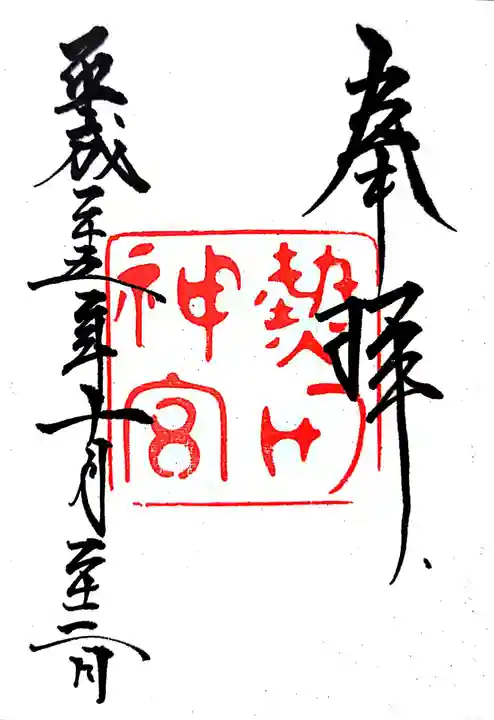 奉拝
熱田神宮
平成二十五年十月二十二日